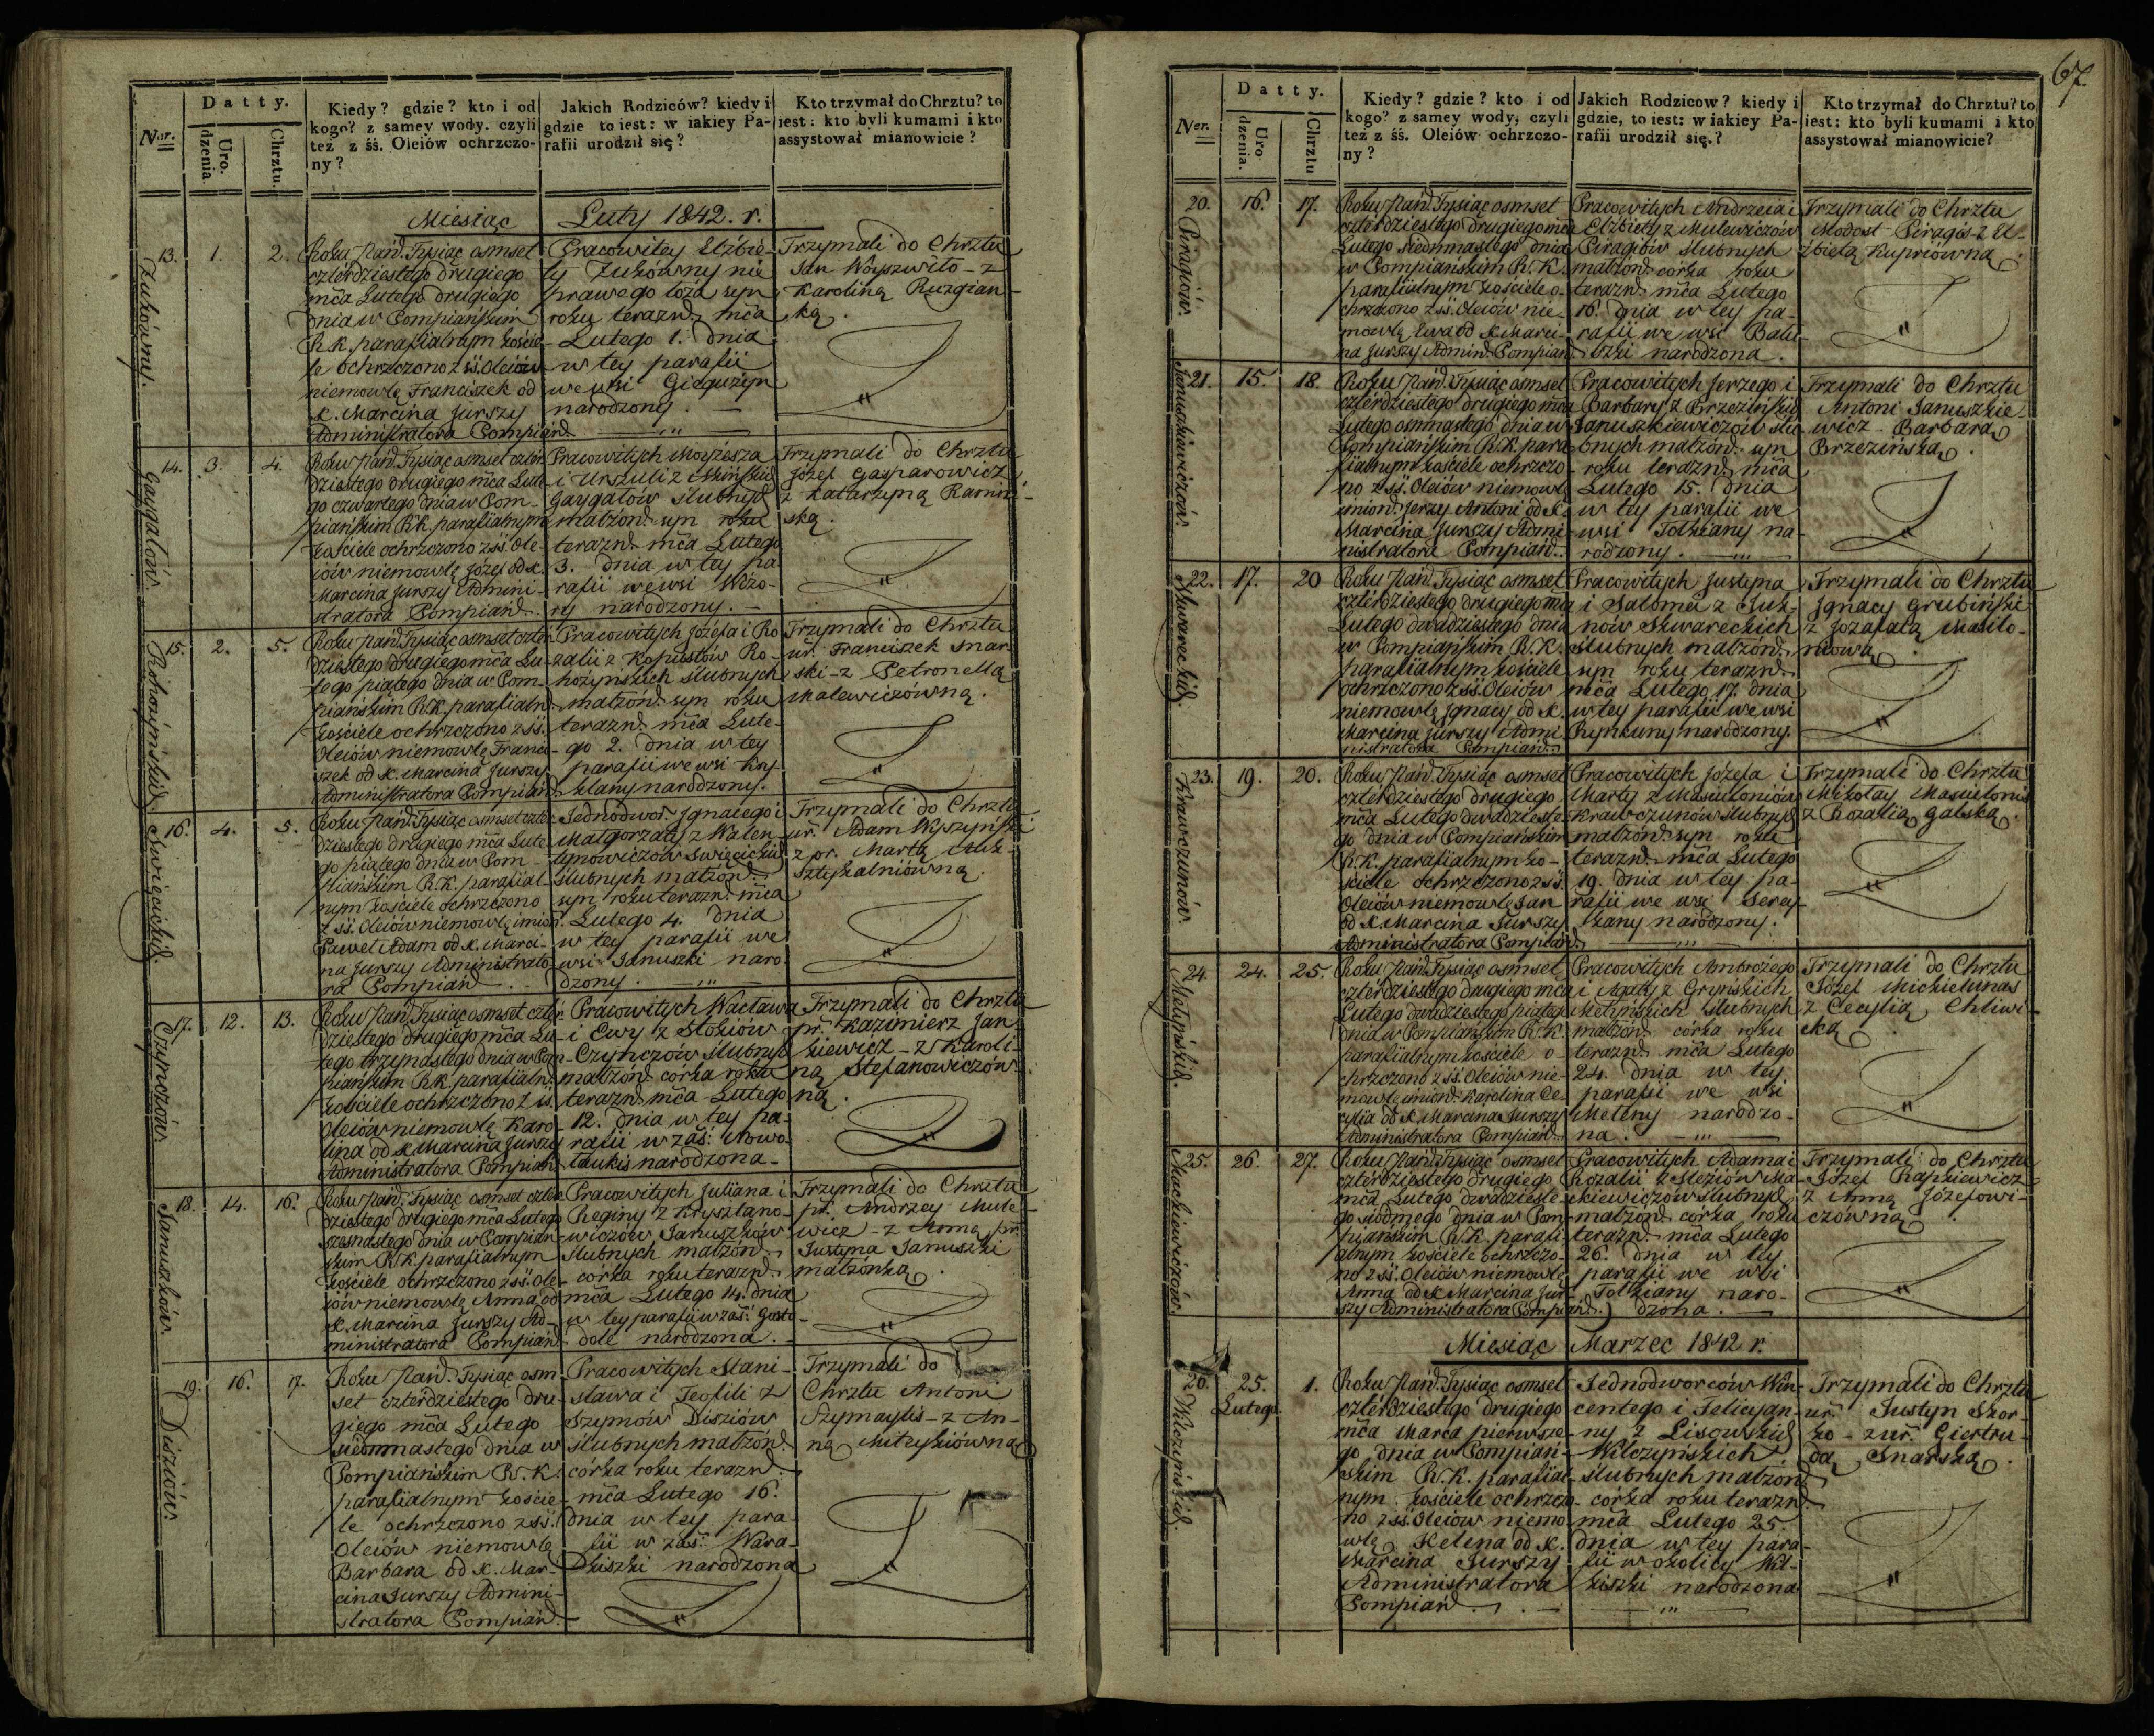 67
Datty.
Ner.
Uro. dzenia.
Chrztu.
Kiedy? gdzie? kto i od
kogo? z samey wody. czyli
też z śś. Oleiów ochrzczo-
ny?
Jakich Rodziców? kiedy i
gdzie to iest: w iakiey Pa-
rafii urodził się?
Kto trzymał do Chrztu? to
iest: kto byli kumami i kto
assystował mianowicie?
Miesiąc Luty 1842. r.
13. 1. 2.
Roku Pańd. Tysiąc osmset
czterdziestego drugiego
mča Lutego drugiego
dnia w Pompiańskim
R. K. parafialnym koście-
le ochrzczono z śś. Oleiów
niemowlę Franciszek od
X. Marcina Jurszy
Administratora Pompiańd.
Pracowitey Elżbie-
ty Żukówny nie
prawego łoża syn
roku terazn. mča
Lutego 1. dnia
w tey parafii
we wsi Giegużyn
narodzony.
Trzymali do Chrztu
Jan Woyszwiłło - z
Karoliną Ruzgian-
ką.
14. 3. 4.
Gaygałów.
Roku Pańd. Tysiąc osmset czter-
dziestego drugiego mča Lute-
go czwartego dnia w Pom-
piańskim R. K. parafialnym
kościele ochrzczono z śś. Ole-
iów niemowlę Józef od X.
Marcina Jurszy Admini-
stratora Pompiańd.
Pracowitych Moyżesza
i Urszuli z Mińskich
Gaygałów ślubnych
małżon. syn roku
terazn. mča Lutego
3. dnia w tey pa-
rafii we wsi Wižo-
ny narodzony.
Trzymali do Chrztu
Józef Gasparowicz
z Katarzyną Ramin-
ską.
15. 2. 5.
Rohożyńskich
Roku Pańd. Tysiąc osmset czter-
dziestego drugiego mča Lu-
tego piątego dnia w Pom-
piańskim R. K. parafialn.
kościele ochrzczono z śś.
Oleiów niemowlę Franci-
szek od X. Marcina Jurszy
Administratora Pompiańd.
Pracowitych Józefa i Ro-
zalii z Kopustów Ro-
hożyńskich ślubnych
małżon. syn roku
terazn. mča Lute-
go 2. dnia w tey
parafii we wsi Kry-
klany narodzony.
Trzymali do Chrztu
ur. Franciszek Snar-
ski - z Petronellą
Malewiczówną.
16. 4. 5.
Święcickich.
Roku Pańd. Tysiąc osmset czter-
dziestego drugiego mča Lute-
go piątego dnia w Pom-
piańskim R. K. parafial-
nym kościele ochrzczono
z śś. Oleiów niemowlę imion.
Paweł Adam od X. Marci-
na Jurszy Administrato-
ra Pompiańd.
Jednodwor. Ignacego i
Małgorzaty z Walen-
tynowiczów Święcickich
ślubnych małżon.
syn roku terazn. mča
Lutego 4. dnia
w tey parafii we
wsi Januszki naro-
dzony.
Trzymali do Chrztu
ur. Adam Wyszyński
z pr. Martą Muk-
sztykalniówną.
17. 12. 13.
Czynczów.
Roku Pańd. Tysiąc osmset czter-
dziestego drugiego mča Lu-
tego trzynastego dnia w Pom-
piańskim R. K. parafialn.
kościele ochrzczono z śś.
Oleiów niemowlę Karo-
lina od X. Marcina Jurszy
Administratora Pompiańd.
Pracowitych Wacława
i Ewy z Stokiów
Czynczów ślubnych
małżon. córka roku
terazn. mča Lutego
12. dnia w tey pa-
rafii w zaś: Nowo-
laukis narodzona
Trzymali do Chrztu
pr. Kazimierz Jan-
kiewicz - z Karoli-
ną Stefanowiczów-
ną.
18. 14. 16.
Januszków.
Roku Pańd. Tysiąc osmset czter-
dziestego drugiego mča Lutego
szesnastego dnia w Pompiań-
skim R. K. parafialnym
kościele ochrzczono z śś. Ole-
iów niemowlę Anna od
X. Marcina Jurszy Ad-
ministratora Pompiańd.
Pracowitych Juliana i
Reginy z Krysztano-
wiczów Januszków
ślubnych małżon.
córka roku terazn.
mča Lutego 14. dnia
w tey parafii w zaś: Gusto-
dole narodzona.
Trzymali do Chrztu
pr. Andrzey Mule-
wicz - z Anną pr.
Justyna Januszki
małżonką.
19. 16. 17.
Disziów.
Roku Pańd. Tysiąc osm-
set czterdziestego dru-
giego mča Lutego
siedmnastego dnia w
Pompiańskim R. K.
parafialnym koście-
le ochrzczono z śś.
Oleiów niemowlę
Barbara od X. Mar-
cina Jurszy Admini-
stratora Pompiańd.
Pracowitych Stani-
sława i Teofili z
Szymów Disziów
ślubnych małżon.
córka roku terazn.
mča Lutego 16.
dnia w tey para-
fii w zaś: Wara-
dkiszki narodzona
Trzymali do
Chrztu Antoni
Szymaytis - z An-
ną Mitrykiówną
Datty.
Ner.
Uro dzenia.
Chrztu
Kiedy? gdzie? kto i od
kogo? z samey wody, czyli
też z śś. Oleiów ochrzczo-
ny?
Jakich Rodzicow? kiedy i
gdzie, to iest: w iakiey Pa-
rafii urodził się.?
Kto trzymał do Chrztu? to
iest: kto byli kumami i kto
assystował mianowicie?
20. 16. 17.
Piragiów.
Roku Pańd. Tysiąc osmset
czterdziestego drugiego mča
Lutego siedmnastego dnia
w Pompiańskim R. K.
parafialnym kościele o-
chrzczono z śś. Oleiów nie-
mowlę Ewa od X. Marci-
na Jurszy Admin. Pompiańd.
Pracowitych Andrzeia i
Elżbiety z Mulewiczów
Piragiów ślubnych
małżon. córka roku
terazn. mča Lutego
16. dnia w tey pa-
rafii we wsi Balu-
szki narodzona.
Trzymali do Chrztu
Modest Piragis - z El-
żbietą Kupriówną.
21. 15. 18.
Januszkiewiczów.
Roku Pańd. Tysiąc osmset
czterdziestego drugiego mča
Lutego osmnastego dnia w
Pompiańskim R. K. para-
fialnym kościele ochrzczo-
no z śś. Oleiów niemowlę
imion. Jerzy Antoni od X.
Marcina Jurszy Admi-
nistratora Pompiańd.
Pracowitych Jerzego i
Barbary z Brzezińskich
Januszkiewiczów ślu-
bnych małżon. syn
roku terazn. mča
Lutego 15. dnia
w tey parafii we
wsi Tolkiany na-
rodzony.
Trzymali do Chrztu
Antoni Januszkie-
wicz - Barbarą
Brzezińską.
22. 17. 20
Skwareckich.
Roku Pańd. Tysiąc osmset
czterdziestego drugiego mča
Lutego dwudziestego dnia
w Pompiańskim R. K.
parafialnym kościele
ochrzczono z śś. Oleiów
niemowlę Ignacy od X.
Marcina Jurszy Admi-
nistratora Pompiańd.
Pracowitych Justyna
i Salomei z Juk-
nów Skwareckich
ślubnych małżon.
syn roku terazn.
mča Lutego 17. dnia
w tey parafii we wsi
Rynkuny narodzony.
Trzymali do Chrztu
Ignacy Grubiński
z Jozafatą Masiło-
niową.
23. 19. 20.
Krawczunów.
Roku Pańd. Tysiąc osmset
czterdziestego drugiego
mča Lutego dwudzieste-
go dnia w Pompiańskim
R. K. parafialnym ko-
ściele ochrzczono z śś.
Oleiów niemowlę Jan
od X. Marcina Jurszy
Administratora Pompiańd.
Pracowitych Józefa i
Marty z Masiuloniów
Krawczunów ślubnych
małżon. syn roku
terazn. mča Lutego
19. dnia w tey pa-
rafii we wsi Serey-
kany narodzony.
Trzymali do Chrztu
Mikołay Masiulonis
z Rozalią Galską.
24. 24. 25.
Metlyńskich.
Roku Pańd. Tysiąc osmset
czterdziestego drugiego mča
Lutego dwudziestego piątego
dnia w Pompiańskim R. K.
parafialnym kościele o-
chrzczono z śś. Oleiów nie-
mowlę imion. Karolina Ce-
cylia od X. Marcina Jurszy
Administratora Pompiańd.
Pracowitych Ambrożego
i Agaty z Gryńskich
Metlyńskich ślubnych
małżon. córka roku
terazn. mča Lutego
24. dnia w tey
parafii we wsi
Metlny narodzo-
na.
Trzymali do Chrztu
Józef Michielunas
z Cecylią Chliwi-
cką.
25. 26. 27.
Mackiewiczów.
Roku Pańd. Tysiąc osmset
czterdziestego drugiego
mča Lutego dwudzieste-
go siódmego dnia w Pom-
piańskim R. K. parafi-
alnym kościele ochrzczo-
no z śś. Oleiów niemowlę
Anna od X. Marcina Jur-
szy Administratora Pompiańd.
Pracowitych Adama i
Rozalii z Śleziów Ma-
ckiewiczów ślubnych
małżon. córka roku
terazn. mča Lutego
26. dnia w tey
parafii we wsi
Tolkiany naro-
dzona.
Trzymali do Chrztu
Józef Rapkiewicz
z Anną Józefowi-
czówną.
Miesiąc Marzec 1842 r.
25. Lutego. 1.
Wilczyńskich.
Roku Pańd. Tysiąc osmset
czterdziestego drugiego
mča Marca pierwsze-
go dnia w Pompiań-
skim R. K. parafial-
nym kościele ochrzczo-
no z śś. Oleiów niemo-
wlę Helena od X.
Marcina Jurszy
Administratora
Pompiańd.
Jednodworców Win-
centego i Felicyan-
ny z Lisowskich
Wilczyńskich
ślubnych małżon.
córka roku terazn.
mča Lutego 25.
dnia w tey para-
fii w okolicy Wil-
kiszki narodzona
Trzymali do Chrztu
ur. Justyn Skor-
ko - z ur. Giertru-
dą Snarską.